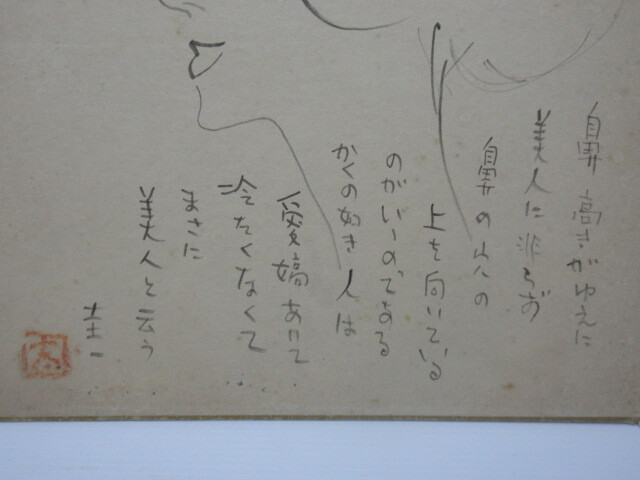 鼻高きがゆえに
美人に非らず
鼻の穴の
上を向いている
のがいいのである
かくの如き人は
愛嬌あって
冷たくなくて
まさに
美人と云う
圭一